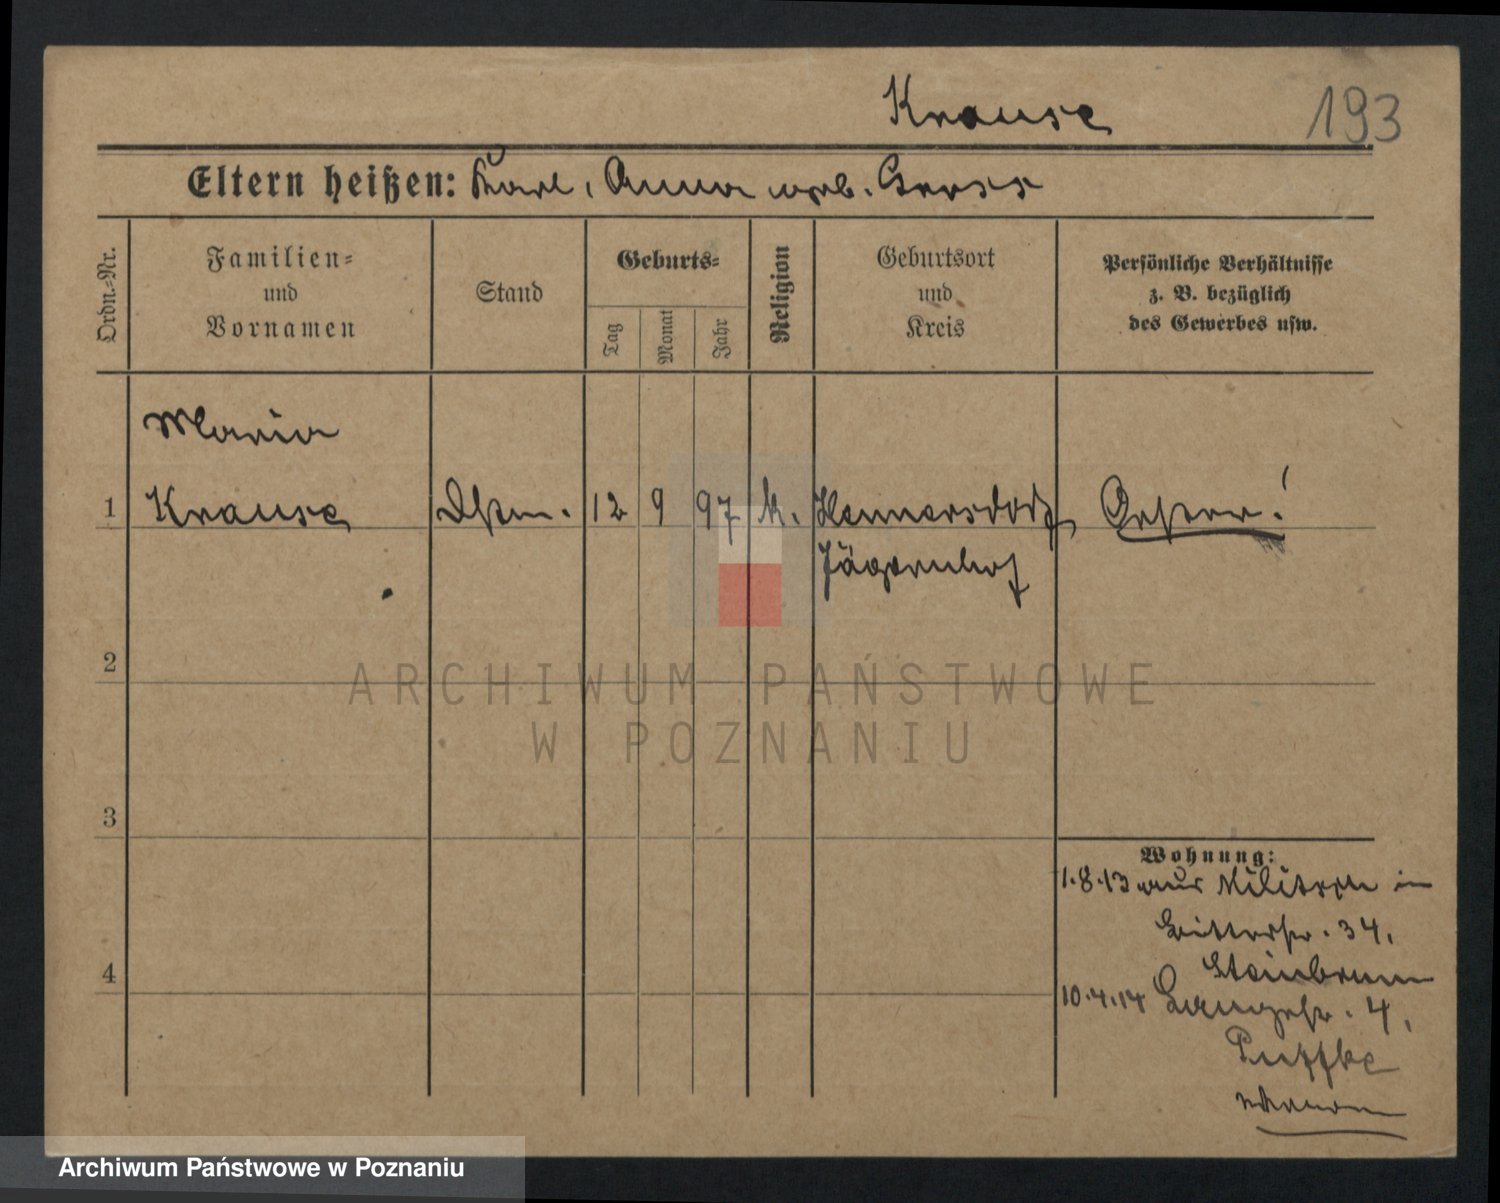 Krause
193
Eltern heißen: Karl, Anna geb. Gross
Ordn.-Nr.
Familien-
und
Vornamen
Stand
Geburts-
Tag
Monat
Jahr
Religion
Geburtsort
und
Kreis
Persönliche Verhältnisse
z. B. bezüglich
des Gewerbes usw.
Maria
1 Krause 12 9 97 k. Hennersdorf
Jägerndorf
2
3
4
Wohnung:
1.8.13 aus Militsch in
Ritterstr. 34,
Steinbrunn
10.4.14 Langestr. 4,
Putzke
ARCHIWUM PAŃSTWOWE
W POZNANIU
Archiwum Państwowe w Poznaniu